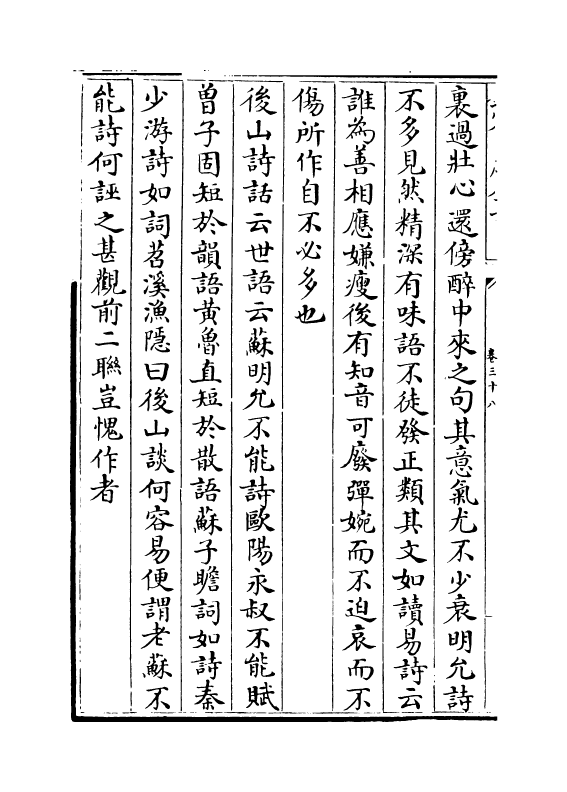 卷三十八
裏過壯心還傍醉中來之句其意氣尤不少衰明允詩
不多見然精深有味語不徒發正類其文如讀易詩云
誰為善相應嫌瘦後有知音可廢彈婉而不迫哀而不
傷所作自不必多也
後山詩話云世語云蘇明允不能詩歐陽永叔不能賦
曾子固短於韻語黃魯直短於散語蘇子瞻詞如詩秦
少游詩如詞苕溪漁隱曰後山談何容易便謂老蘇不
能詩何誣之甚觀前二聯豈愧作者